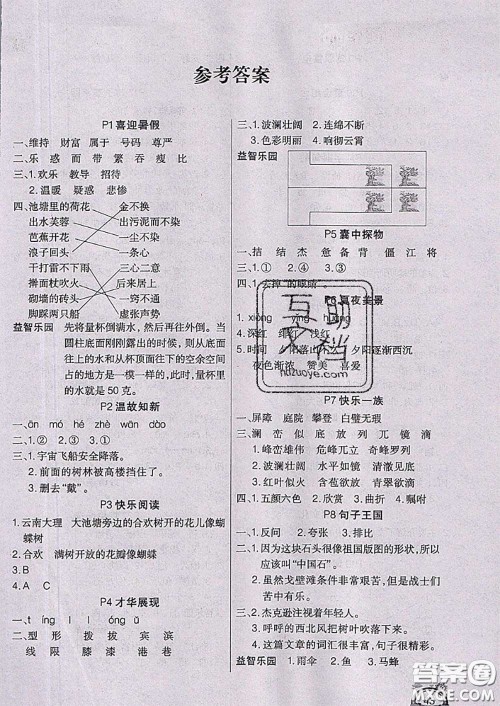 参考答案
P1喜迎暑假
一、维持 财富 属于 号码 尊严
二、乐 惑 面 带 繁 吞 瘦 比
三、1.欢乐 教导 招待
2.温暖 疑惑 悲惨
四、池塘里的荷花 金不换
出水芙蓉 出污泥而不染
芭蕉开花 一尘不染
浪子回头 一条心
干打雷不下雨 三心二意
擀面杖吹火 后来居上
砌墙的砖头 一窍不通
脚踩两只船 虚张声势
益智乐园 先将量杯倒满水，然后倾倒。当
圆柱底面刚刚露出的时候，则底面
往上的水和底面往下的空余空间
占的地方是一模一样的，此时量杯里
的水就是50克。
P2温故知新
一、āo hé zhè wān dào
二、1.① 2.③ 3.②
三、1.宇宙飞船安全降落。
2.前面的树林被高楼挡住了。
3.删去“戴”。
P3快乐阅读
1.云南大理 大池塘旁边的合欢树开的花儿像蝴
蝶树
2.合欢 满树开放的花瓣像蝴蝶
3.B
4.A C
P4才华展现
一、t íng l í óng ǔ
二、型 形 拨 拔 宾 滨
线 限 膝 漆 港 巷
三、1.波澜壮阔 2.连绵不断
3.色彩明丽 4.响彻云霄
益智乐园
P5囊中探物
一、拮 结 杰 惫 备 背 僵 江 将
三、1.① 2.④ 3.①
四、去掉“的眼睛”
P6夏夜美景
1.xióng yíng huǎng
4.深红 绯红 浅红
5.时间 夕阳逐渐西沉
夜色渐浓 赞美 喜爱
P7快乐一族
一、屏障 庭院 攀登 白璧无瑕
二、澜 峦 似 底 放 列 兀 镜 滴
三、1.峰峦雄伟 危峰兀立 奇峰罗列
2.波澜壮阔 水平如镜 清澈见底
3.红叶似火 桂花飘香 青翠欲滴
四、1.五颜六色 2.欣赏 3.曲折 4.嘱咐
P8句子王国
一、1.反问 2.夸张 3.排比
二、1.因为这块石头很像祖国版图的形状，所以
应该叫“中国石”。
2.虽然戈壁滩条件非常艰苦，但是战士们
甘于寂寞。
三、2.杰克逊注视着年轻人。
3.呼呼的西北风把树叶吹落下来。
4.这篇文章的词汇十分丰富，句子很精彩。
益智乐园 1.雨伞 2.鱼 3.马蜂
互动文档
hdzuoye.com
答案圈
MXQE.COM